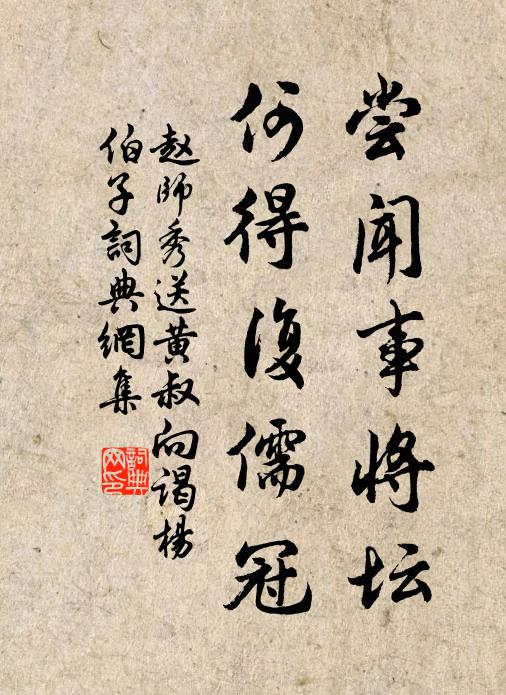 尝闻事将坛
何得复儒冠
赵师秀送黄叔向谒杨
伯子詞典網集
詞典
网印